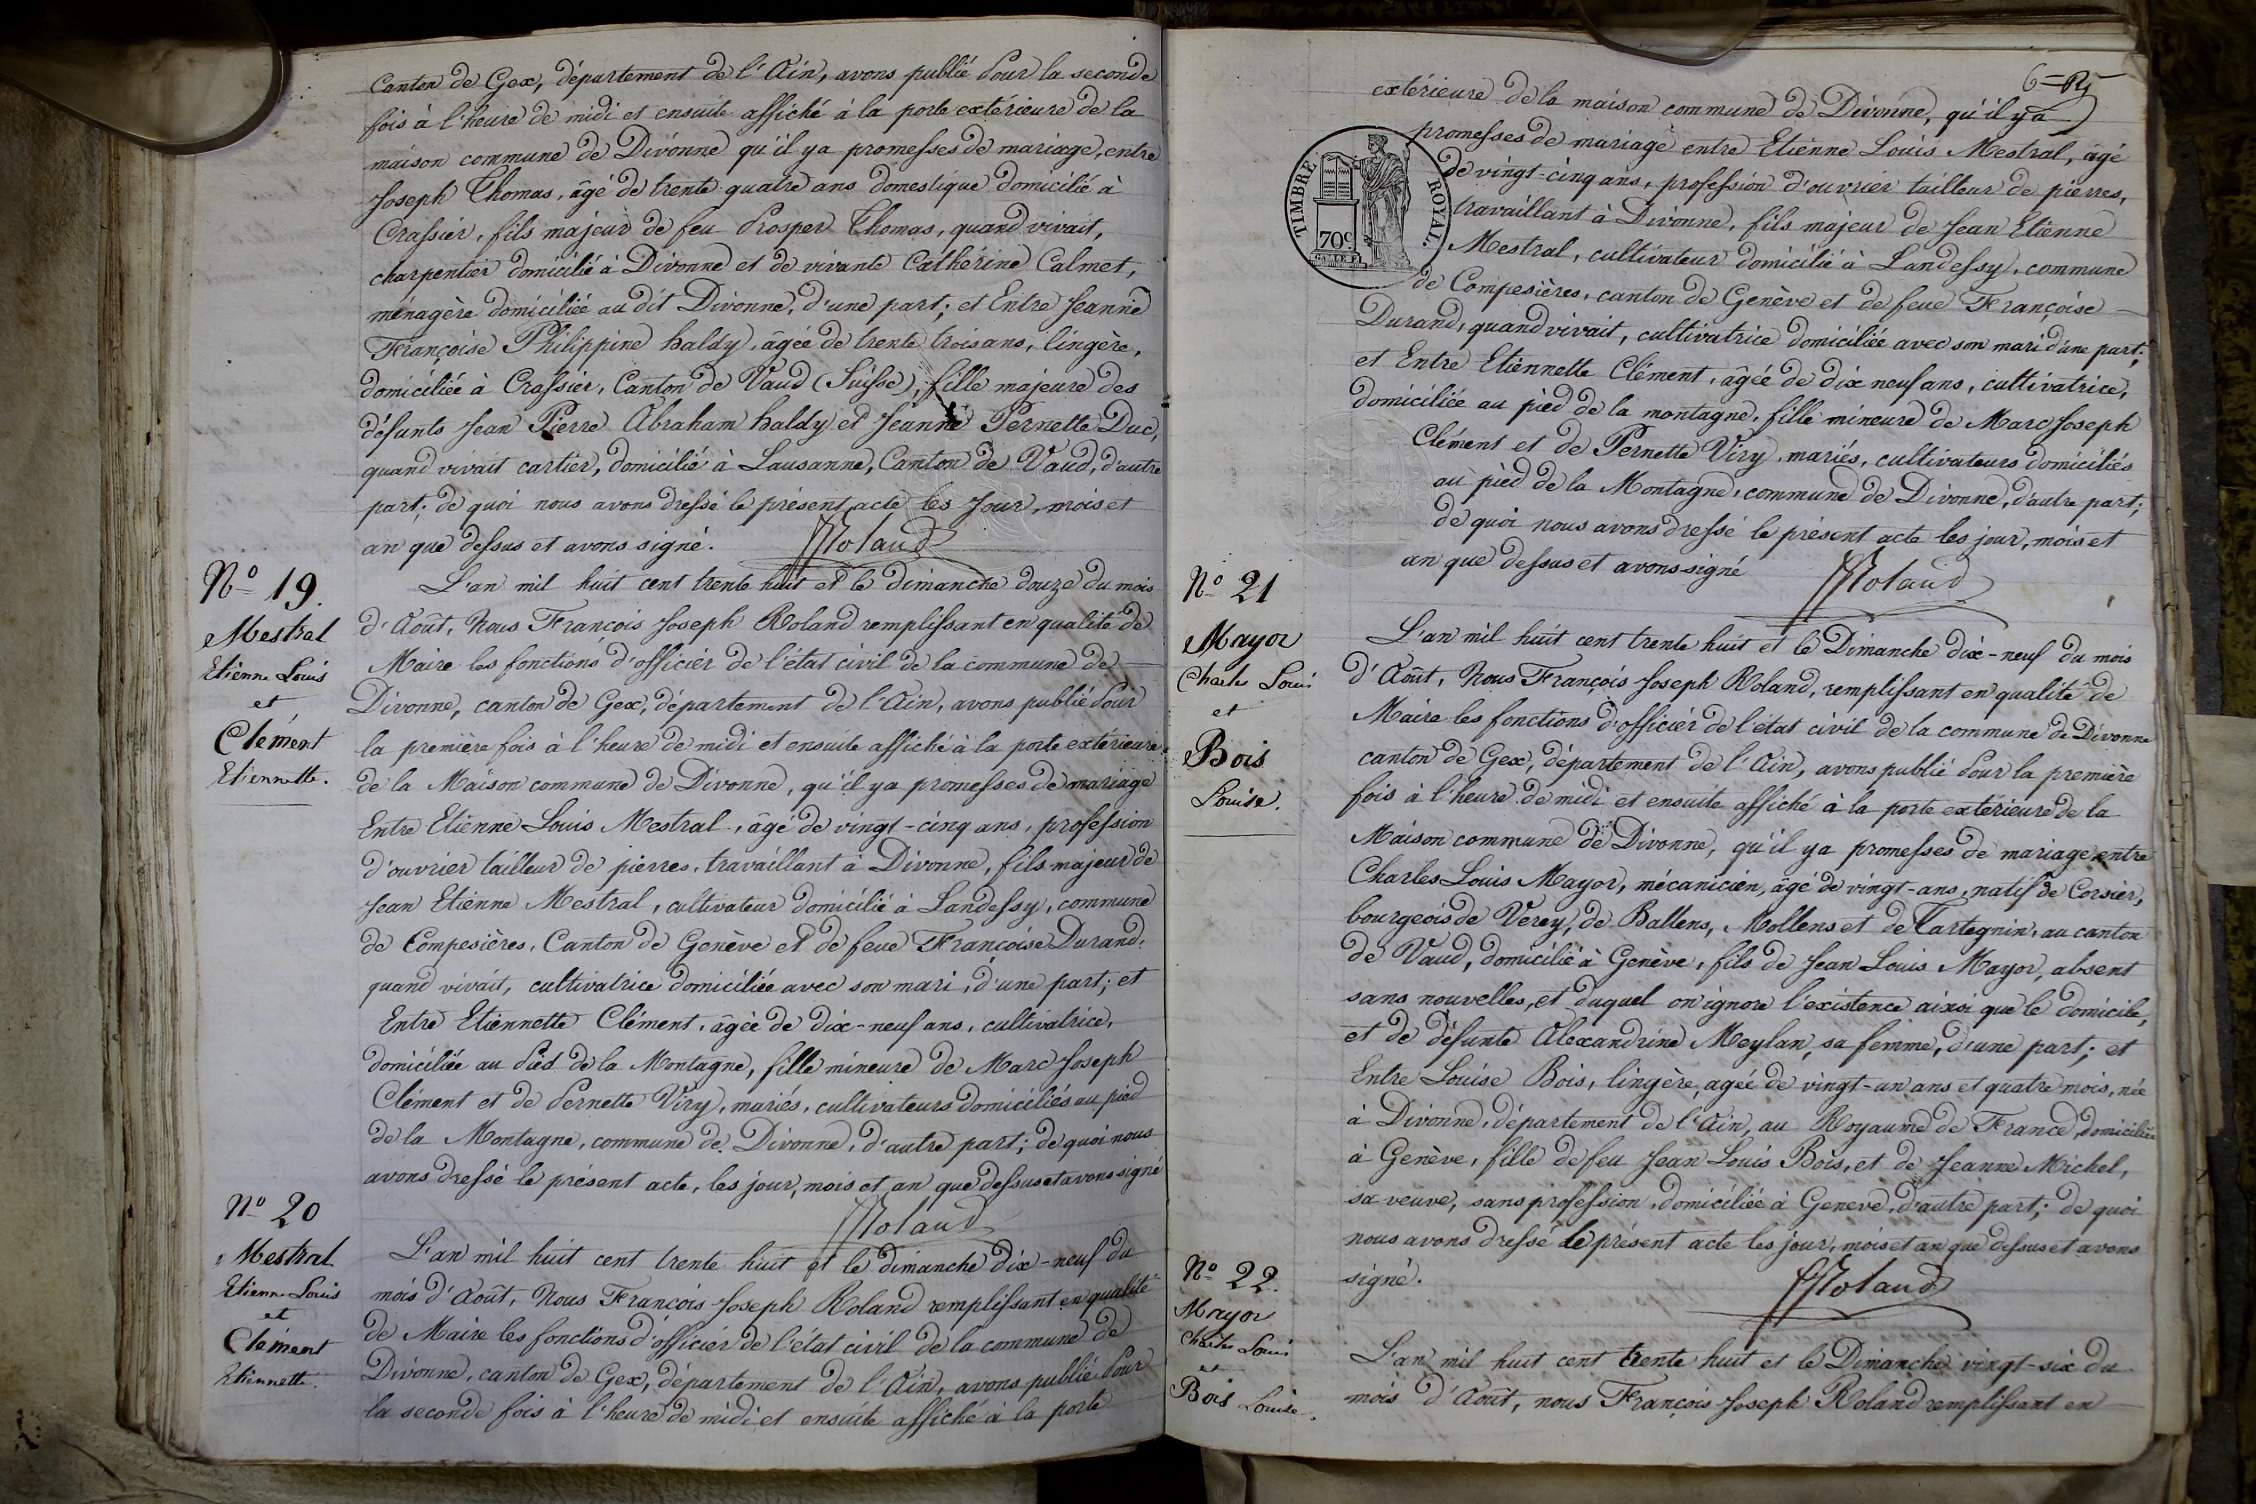 Canton de Gex, département de l'Ain, avons publié Pour la seconde
fois à l'heure de midi et ensuite affiché à la porte extérieure de la
maison commune de Divonne qu'il y a promesses de mariage, entre
Joseph Thomas, âgé de trente quatre ans domestique domicilié à
Crassier, fils majeur de feu Prosper Thomas, quand vivait,
charpentier domicilié à Divonne et de vivante Cathérine Calmet,
ménagère domiciliée au dit Divonne, d'une part; et Entre Jeanne
Françoise Philippine haldy, âgée de trente trois ans, lingère,
domiciliée à Crassier, Canton de Vaud (Suisse), fille majeure des
défunts Jean Pierre Abraham haldy et Jeanne Pernette Duc,
quand vivait cartier, domicilié à Lausanne, Canton de Vaud, d'autre
part; de quoi nous avons dressé le présent acte les Jour, mois et
an que dessus et avons signé. Roland
No 19.
Mestral
Etienne Louis
et
Clément
Etiennette.
L'an mil huit cent trente huit et le dimanche douze du mois
d'Août, Nous François Joseph Roland remplissant en qualité de
Maire les fonctions d'officier de l'état civil de la commune de
Divonne, canton de Gex, département de l'Ain, avons publié Pour
la première fois à l'heure de midi et ensuite affiché à la porte extérieure
de la Maison commune de Divonne, qu'il y a promesses de mariage
Entre Etienne Louis Mestral, âgé de vingt-cinq ans, profession
d'ouvrier tailleur de pierres, travaillant à Divonne, fils majeur de
Jean Etienne Mestral, cultivateur domicilié à Landessy, commune
de Compesières, Canton de Genève et de feue Françoise Durand,
quand vivait, cultivatrice domiciliée avec son mari, d'une part; et
Entre Etiennette Clément, âgée de dix-neuf ans, cultivatrice,
domiciliée au Pied de la Montagne, fille mineure de Marc Joseph
Clément et de Pernette Viry, mariés, cultivateurs domiciliés au pied
de la Montagne, commune de Divonne, d'autre part; de quoi nous
avons dressé le présent acte, les jour, mois et an que dessus et avons signé
Roland
No 20
Mestral
Etienne Louis
et
Clément
Etiennette.
L'an mil huit cent trente huit et le dimanche dix-neuf du
mois d'Août, Nous François Joseph Roland remplissant en qualité
de Maire les fonctions d'officier de l'état civil de la commune de
Divonne, canton de Gex, département de l'Ain, avons publié Pour
la seconde fois à l'heure de midi et ensuite affiché à la porte
TIMBRE ROYAL.
70c.
extérieure de la maison commune de Divonne, qu'il y a
promesses de mariage entre Etienne Louis Mestral, âgé
de vingt-cinq ans, profession d'ouvrier tailleur de pierres,
travaillant à Divonne, fils majeur de Jean Etienne
Mestral, cultivateur domicilié à Landessy, commune
de Compesières, canton de Genève et de feue Françoise
Durand, quand vivait, cultivatrice domiciliée avec son mari d'une part;
et Entre Etiennette Clément, âgée de dix neuf ans, cultivatrice,
domiciliée au pied de la montagne, fille mineure de Marc Joseph
Clément et de Pernette Viry, mariés, cultivateurs domiciliés
au pied de la Montagne, commune de Divonne, d'autre part;
de quoi nous avons dressé le présent acte les jour, mois et
an que dessus et avons signé Roland
No 21
Mayor
Charles Louis
et
Bois
Louise.
L'an mil huit cent trente huit et le Dimanche dix-neuf du mois
d'Août, Nous François Joseph Roland, remplissant en qualité de
Maire les fonctions d'officier de l'état civil de la commune de Divonne
canton de Gex, département de l'Ain, avons publié Pour la première
fois à l'heure de midi et ensuite affiché à la porte extérieure de la
Maison commune de Divonne, qu'il y a promesses de mariage entre
Charles Louis Mayor, mécanicien, âgé de vingt-ans, natif de Corsier,
bourgeois de Verey, de Ballens, Mollens et de Tartegnin, au canton
de Vaud, domicilié à Genève, fils de Jean Louis Mayor, absent
sans nouvelles, et duquel on ignore l'existence ainsi que le domicile,
et de défunte Alexandrine Meylan, sa femme, d'une part; et
Entre Louise Bois, lingère, agée de vingt-un ans et quatre mois, née
à Divonne, département de l'Ain, au Royaume de France, domiciliée
à Genève, fille de feu Jean Louis Bois, et de Jeanne Michel,
sa veuve, sans profession, domiciliée à Genève, d'autre part; de quoi
nous avons dressé le présent acte les jour, mois et an que dessus et avons
signé. Roland
No 22.
Mayor
Charles Louis
et
Bois Louise.
L'an mil huit cent trente huit et le Dimanche vingt-six du
mois d'Août, nous François Joseph Roland remplissant en